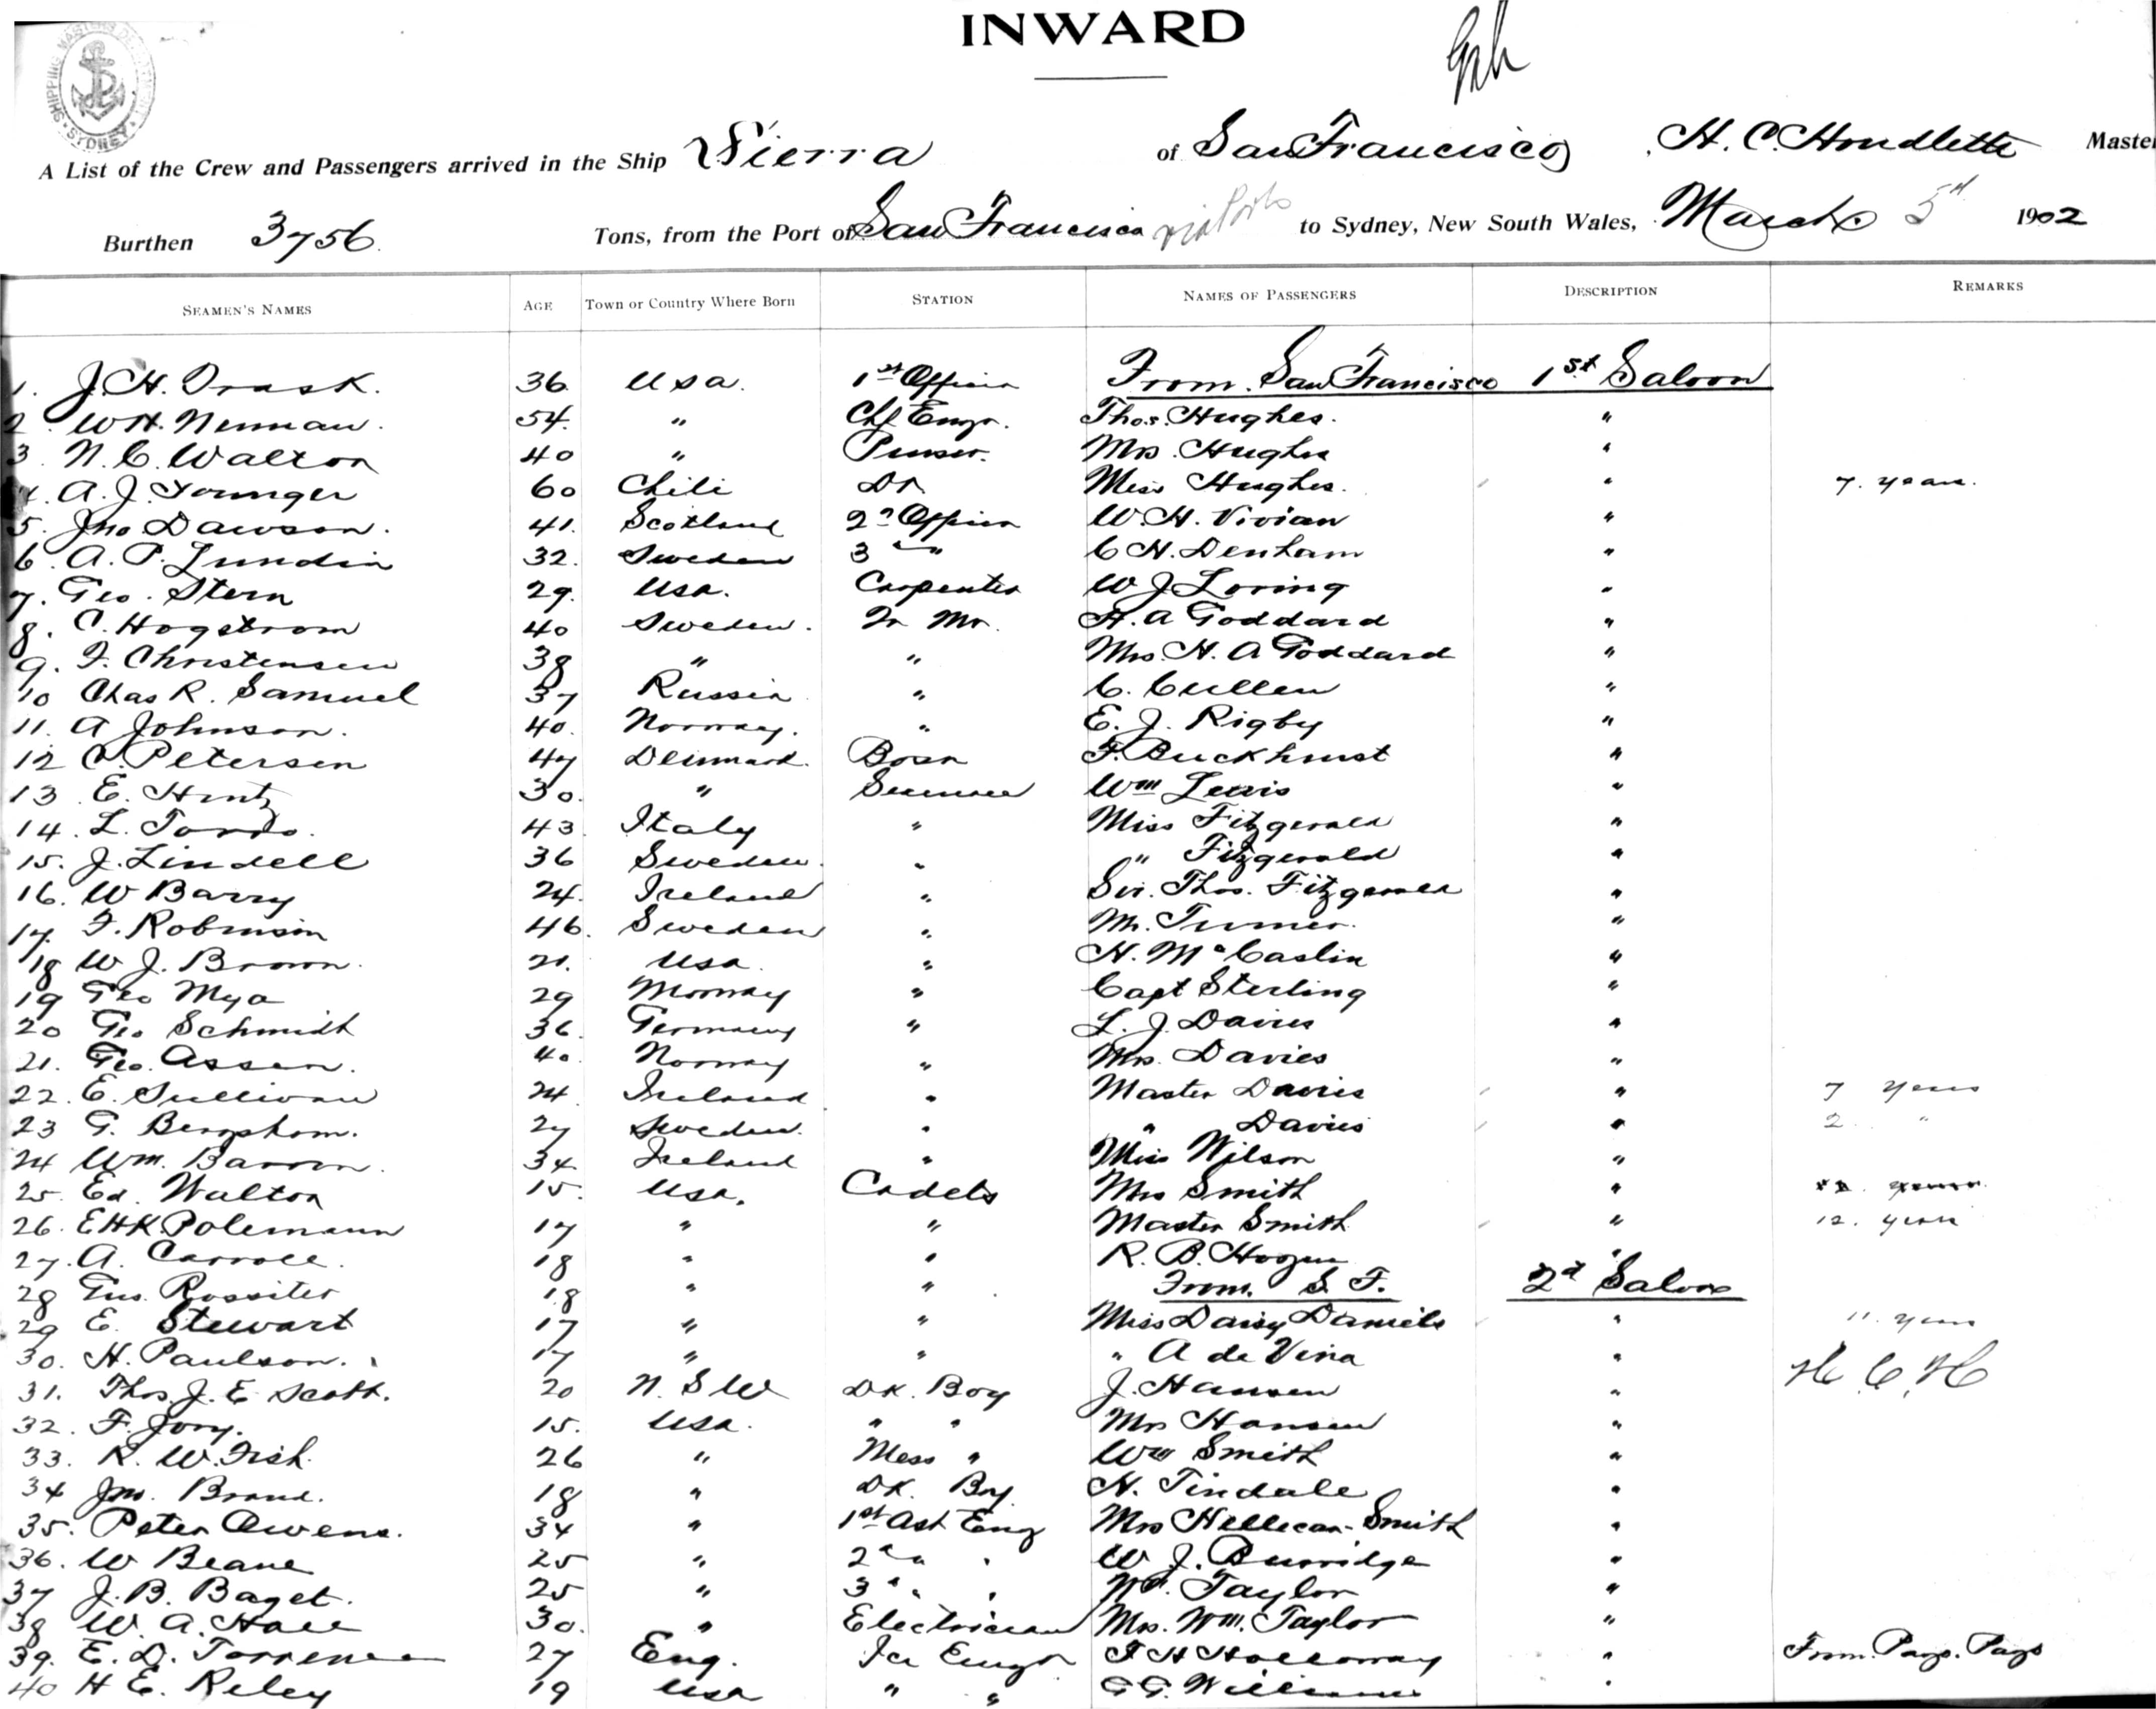 INWARD
SHIPPING MASTERS DEPARTMENT SYDNEY
A List of the Crew and Passengers arrived in the Ship Sierra of San Francisco, H. C. Houdlette Master
Burthen 3756 Tons, from the Port of San Francisco via Ports to Sydney, New South Wales, March 5th 1902
SEAMEN'S NAMES AGE Town or Country Where Born STATION NAMES OF PASSENGERS DESCRIPTION REMARKS
1. J. H. Trask. 36 Usa. 1st Officer From San Francisco 1st Saloon
2 W H. Neuman. 54. " Chf Engr. Thos. Hughes. "
3. N. C. Walton 40 " Purser. Mrs. Hughes "
4. A. J. Younger 60 Chili Dr Miss Hughes. " 7. years.
5. Jno Dawson. 41. Scotland 2d Officer W. H. Vivian "
6. A. P. Lundin 32. Sweden 3 " C H. Denham "
7. Geo. Stern 29. Usa. Carpenter W J Loring "
8. C. Hogstrom 40 Sweden. Qr Mr. H. A Goddard "
9. F. Christensen 38 " " Mrs. H. A Goddard "
10 Chas R. Samuel 37 Russia " C. Cullen "
11. A Johnson. 40. Norway. " E. J. Rigby "
12 C. Petersen 47 Denmark. Bosn F. Buckhurst "
13. E. Hintz 30. " Seaman Wm Lewis "
14. L. Tordo. 43. Italy " Miss Fitzgerald "
15. J. Lindell 36 Sweden. " " Fitzgerald "
16. W Barry 24. Ireland " Sir. Thos. Fitzgerald "
17. F. Robinson 46. Sweden " Mr. Turner. "
18 W J. Brown. 21. Usa. " H. McCaslin "
19 Geo Mya 29 Norway " Capt Sterling "
20 Geo Schmidt 36. Germany " L. J. Davies "
21. Geo. Assen. 40. Norway " Mrs. Davies "
22. E. Sullivan 24. Ireland " Master Davies " 7 years
23 G. Bergshom. 27 Sweden. " " Davies " 2 "
24 Wm. Barron. 34. Ireland " Miss Wilson "
25. Ed. Walton 15. Usa. Cadets Mrs Smith "
26. E H K Polemann 17 " " Master Smith " 12. years
27. A. Carroll. 18 " " R. B. Hogan "
28 Gus. Rossiter 18 " " From. S. F. 2d Saloon
29 E. Stewart 17 " " Miss Daisy Daniels " 11. years
30. H. Paulson. 17 " " " A de Vina " H. C. H
31. Thos. J. E Scott. 20 N. S W Dk. Boy J. Hansen "
32. F. Jory. 15. Usa. " " Mrs Hansen "
33. R. W. Fish. 26 " Mess " Wm Smith "
34 Jno. Brand. 18 " Dk. Boy H. Tindale "
35. Peter Owens. 34 " 1st Ast Eng Mrs Hellecar-Smith "
36. W Beane 25 " 2d " " W. J. Burridge "
37 J. B. Baget. 25 " 3d " " Wm. Taylor "
38 W. A. Hall 30. " Electrician Mrs. Wm. Taylor "
39. E. D. Torrence 27 Eng. Ice Engr F H Holloway " From. Pago. Pago
40 H E. Riley 19 Usa " " G G. Williams "